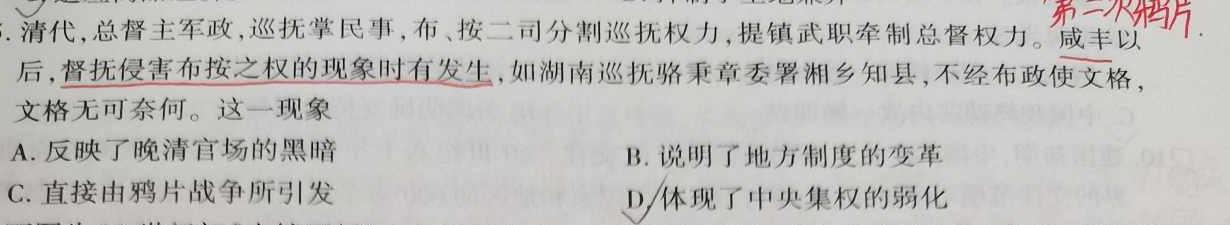 第二次鸦片
. 清代,总督主军政,巡抚掌民事,布、按二司分割巡抚权力,提镇武职牵制总督权力。咸丰以
后,督抚侵害布按之权的现象时有发生,如湖南巡抚骆秉章委署湘乡知县,不经布政使文格,
文格无可奈何。这一现象
A. 反映了晚清官场的黑暗
B. 说明了地方制度的变革
C. 直接由鸦片战争所引发
D. 体现了中央集权的弱化